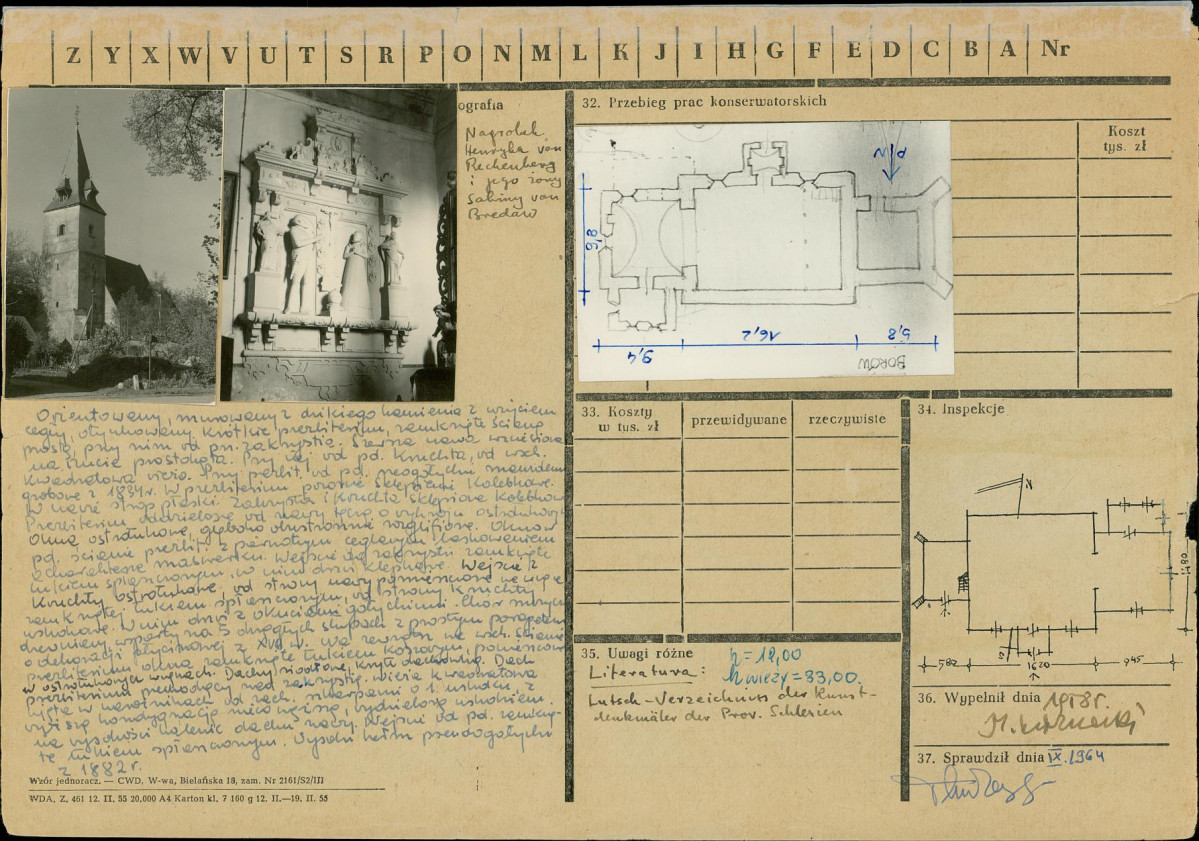 Z Y X W V U T S R P O N M L K J I H G F E D C B A Nr
ografia
Nagrobek
Henryka von
Rechenberg
i jego żony
Sabiny von
Bredaw
32. Przebieg prac konserwatorskich
Koszt
tys. zł
N
9,8
9,4
16,2
5,8
BORÓW
Orientowany, murowany z dzikiego kamienia z użyciem
cegły, otynkowany. Krótkie prezbiterium, zamknięte ścianą
prostą, przy nim od pn. zakrystia. Szersza nawa wzniesiona
na rzucie prostokąta. Przy niej od pd. kruchta, od zach.
kwadratowa wieża. Przy prezbit. od pd. neogotyckie mauzoleum
grobowe z 1834 r. W prezbiterium pozorne sklepienie kolebkowe.
W nawie strop płaski. Zakrystia i kruchta sklepione kolebkowo
Prezbiterium oddzielone od nawy tęczą o wykroju ostrołukowym
Okna ostrołukowe, głęboko obustronnie rozglifione. Okno w
pd. ścianie prezbit. z
maswerku. Wejście do zakrystii zamknięte
łukiem spłaszczonym, w nim drzwi klepkowe. Wejście z
kruchty ostrołukowe, od strony nawy pomieszczone we wnęce
zamkniętej łukiem spłaszczonym, od strony kruchty
uskokowe. W nim drzwi z okuciami gotyckimi. Chór muzyczny
drewniany, wsparty na 5 okrągłych słupach z prostym parapetem
o dekoracji płycinowej z XVIII w. Na zewnątrz na wsch. ścianie
prezbiterium okna zamknięte łukiem koszowym, pomieszczone
w ostrołukowych wnękach. Dachy siodłowe, kryte dachówką. Dach
prezbiterium przechodzący nad zakrystię. Wieża kwadratowa
ujęta w narożnikach od zach. skarpami o 1 uskoku, z
wyższą kondygnacją nieco węższą, wydzieloną uskokiem
na wysokości kalenic dachu nawy. Wejście od pd. zamknię-
te łukiem spłaszczonym. Wysoki hełm pseudogotycki
z 1882 r.
33. Koszty
w tys. zł
przewidywane
rzeczywiste
34. Inspekcje
N
582
1620
945
35. Uwagi różne
h = 12,00
Literatura:
h wieży = 33,00.
Lutsch - Verzeichnis der Kunst-
denkmäler der Prov. Schlesien
36. Wypełnił dnia 1958 r.
37. Sprawdził dnia IX. 1964
Wzór jednoracz. — CWD, W-wa, Bielańska 18, zam. Nr 2161/S2/III
WDA, Z. 461 12. II. 55 20,000 A4 Karton kl. 7 160 g 12. II.—19. II. 55